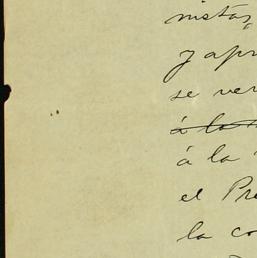 nistas,
y apr
se ver
á la
á la
el Pre
la co